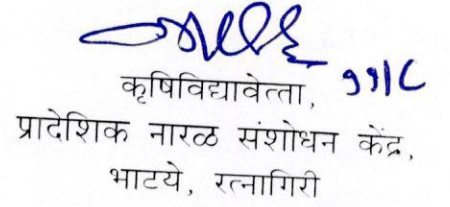 कृषिविद्यावेत्ता, ११/८
प्रादेशिक नारळ संशोधन केंद्र,
भाटये, रत्नागिरी